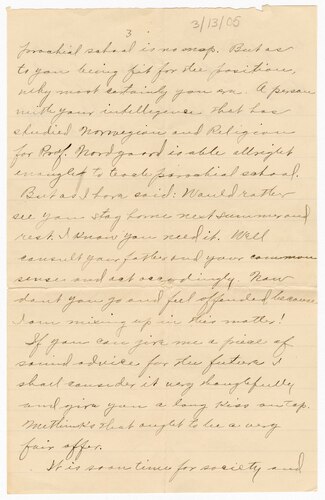 3
3/13/05
parochial school is no snap. But as
to you being fit for the position,
why most certainly you are. A person
with your intelligence that has
studied Norwegian and Religion
for Prof. Nordgaard is able allright
enough to teach parochial school.
But as I have said: Would rather
see you stay home next summer and
rest. I know you need it. Well
consult your father and your common
sense and act accordingly. Now
dont you go and feel offended because
I am mixing up in this matter!
If you can give me a piece of
sound advice for the future I
shall consider it very thoughtfully
and give you a long kiss on top.
Methinks that ought to be a very
fair offer.
It is soon time for society and